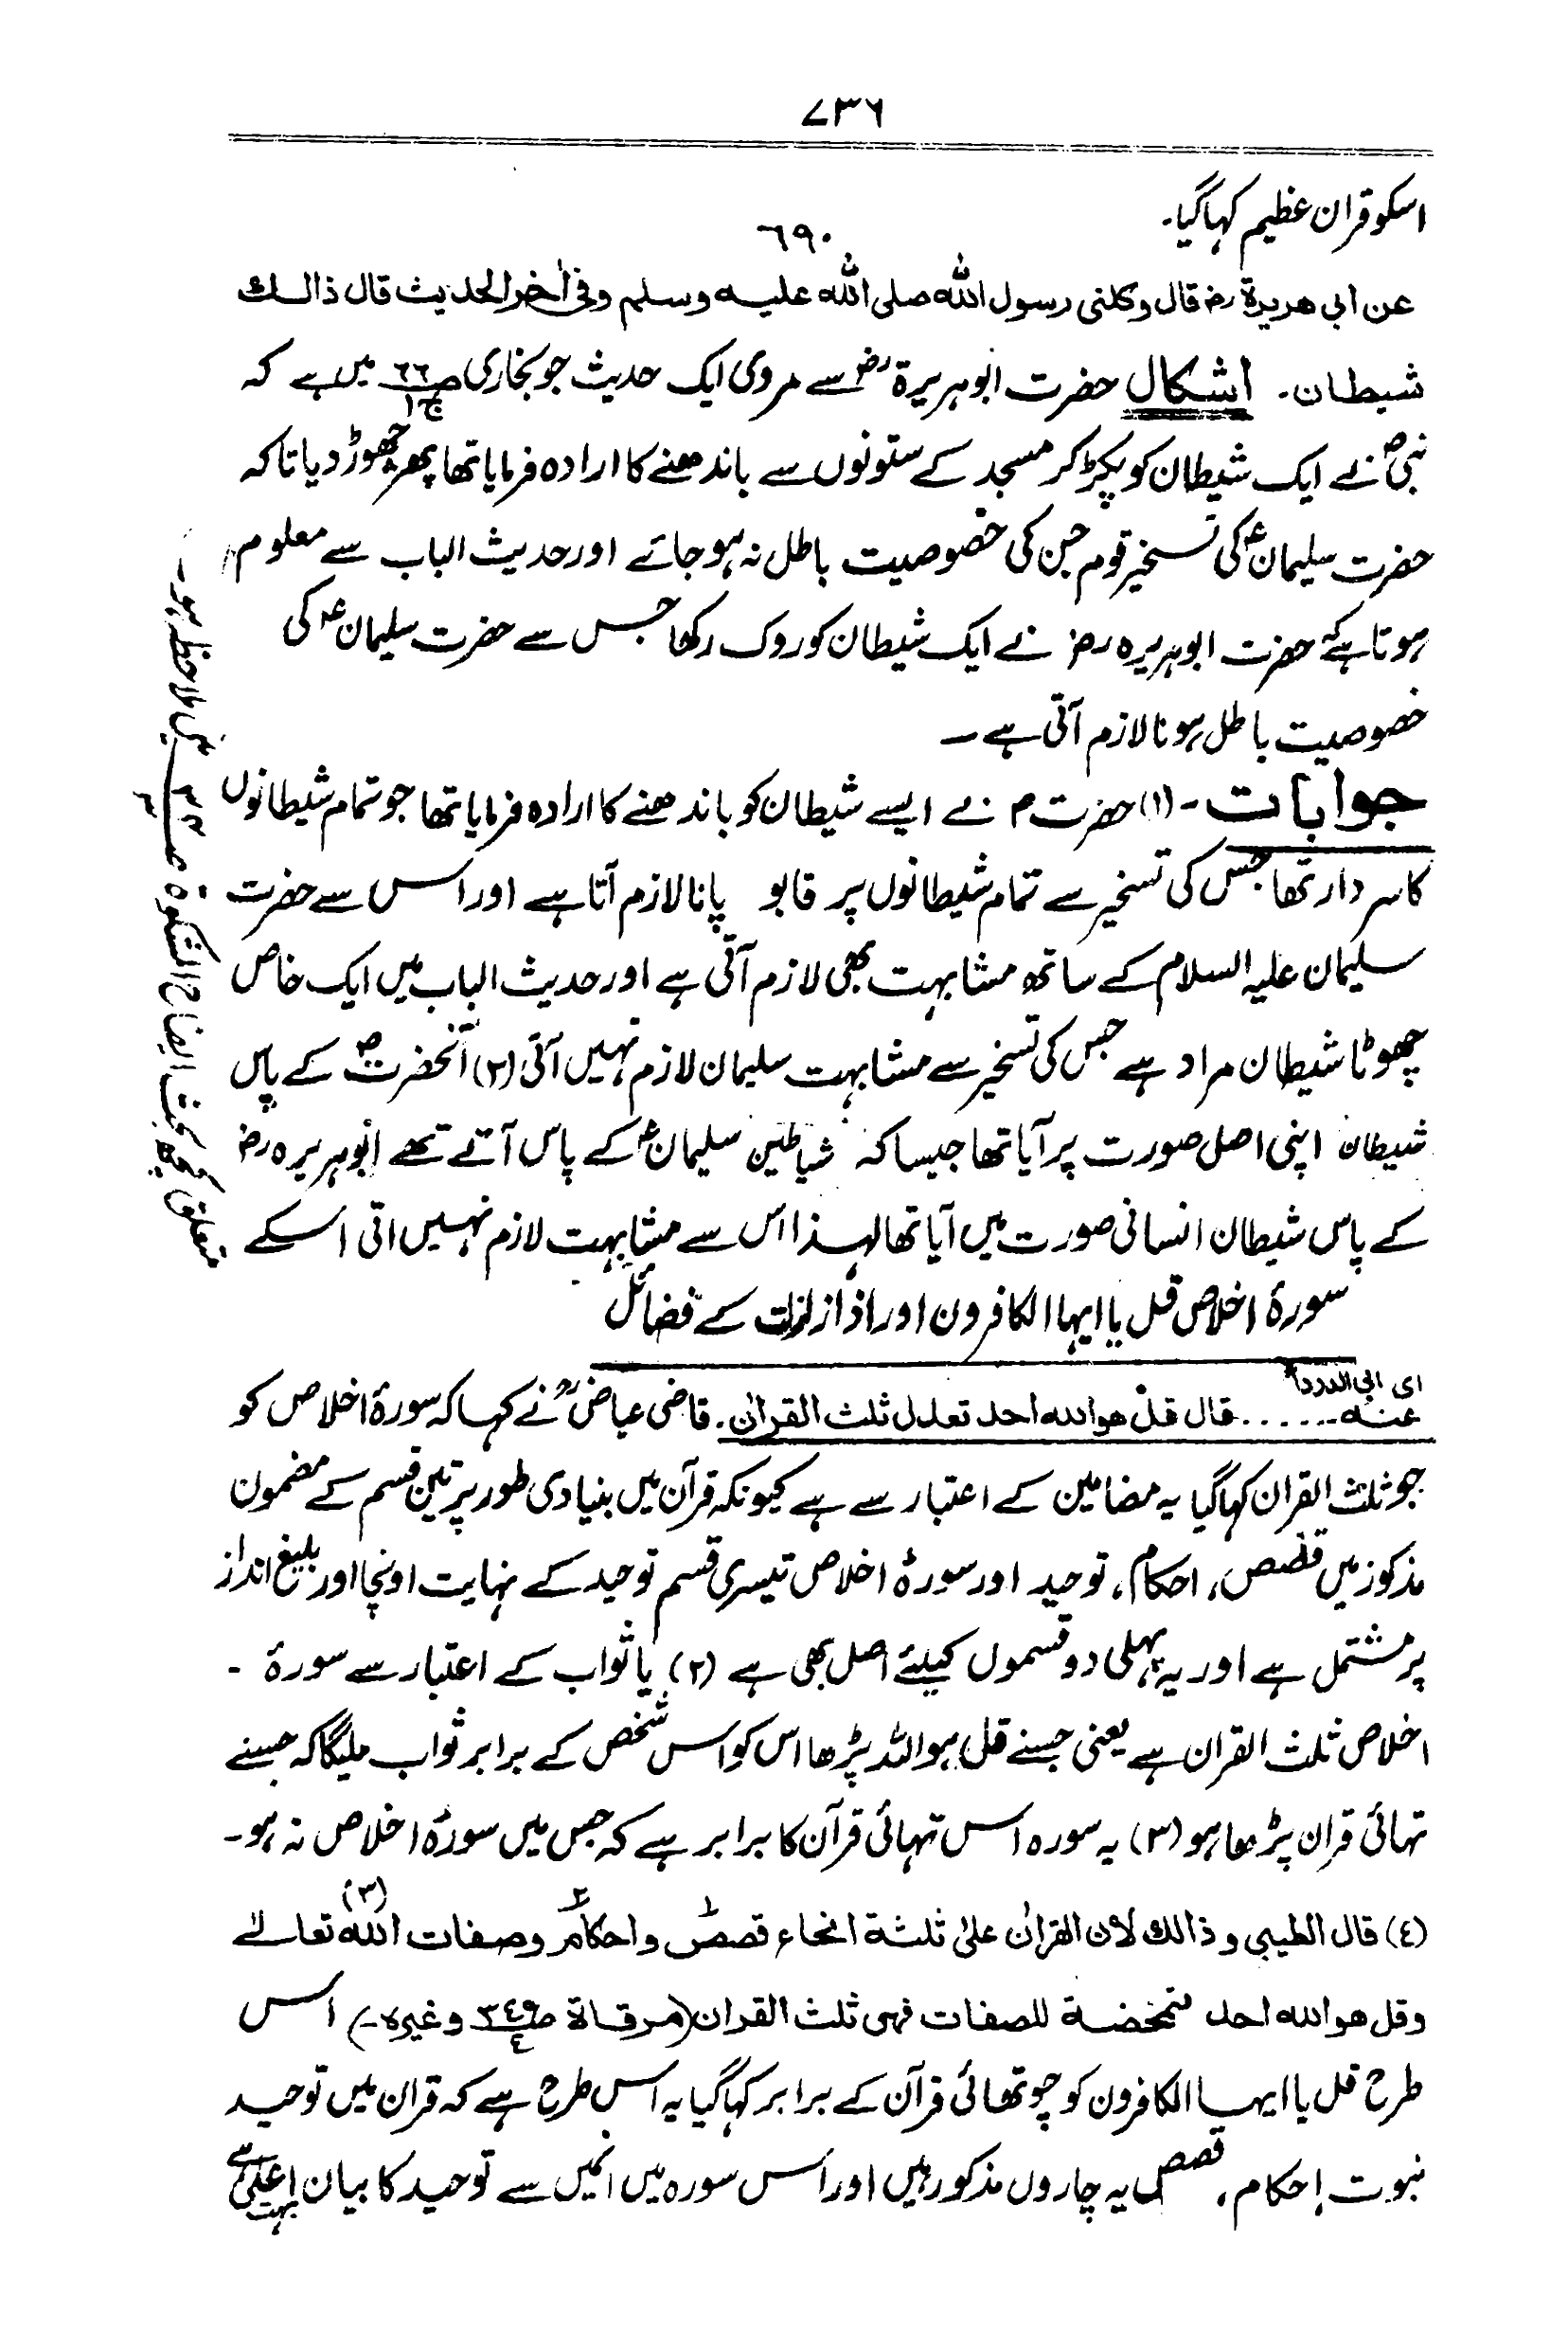 ۷۳۶
اسکو قران عظیم کہا گیا۔
٦٩٠
عن ابی هریرة رض قال وکلنی رسول اللّٰه صلی اللّٰه علیه وسلم وفی اٰخر الحدیث قال ذالك
شیطان۔ اشکال حضرت ابوہریرۃ رض سے مروی ایک حدیث جو بخاری ص ٦٦ ج ۱ میں ہے کہ
نبیؐ نے ایک شیطان کو پکڑ کر مسجد کے ستونوں سے باندھنے کا ارادہ فرمایا تھا پھر چھوڑ دیا تاکہ
حضرت سلیمانؑ کی تسخیر قوم جن کی خصوصیت باطل نہ ہو جائے اور حدیث الباب سے معلوم
ہوتا ہیکہ حضرت ابوہریرہ رض نے ایک شیطان کو روک رکھا جس سے حضرت سلیمانؑ کی
خصوصیت باطل ہونا لازم آتی ہے ۔
جوابات ۔ (۱) حضرت م نے ایسے شیطان کو باندھنے کا ارادہ فرمایا تھا جو تمام شیطانوں
کا سردار تھا جس کی تسخیر سے تمام شیطانوں پر قابو پانا لازم آتا ہے اور اس سے حضرت
سلیمان علیہ السلام کے ساتھ مشابہت بھی لازم آتی ہے اور حدیث الباب میں ایک خاص
چھوٹا شیطان مراد ہے جس کی تسخیر سے مشابہت سلیمان لازم نہیں آتی (۲) آنحضرتؐ کے پاس
شیطان اپنی اصل صورت پر آیا تھا جیسا کہ شیاطین سلیمانؑ کے پاس آتے تھے ابوہریرہ رض
کے پاس شیطان انسانی صورت میں آیا تھا لہذا اس سے مشابہت لازم نہیں اتی اسکے
متعلق کچھ بحث ایضاح المشکوۃ ص میں ملاحظہ ہو۔
سورۂ اخلاص قل یا ایہا الکافرون اور اذا زلزلت کے فضائل
ای ابی الدرداء
عنه....... قال قل هو الله احد تعدل ثلث القراٰن۔ قاضی عیاضؒ نے کہا کہ سورۂ اخلاص کو
جو ثلث القران کہا گیا یہ مضامین کے اعتبار سے ہے کیونکہ قرآن میں بنیادی طور پر تین قسم کے مضمون
مذکور ہیں قصص، احکام، توحید اور سورۂ اخلاص تیسری قسم توحید کے نہایت اونچا اور بلیغ انداز
پر مشتمل ہے اور یہ پہلی دو قسموں کیلئے اصل بھی ہے (۲) یا ثواب کے اعتبار سے سورۂ ۔
اخلاص ثلث القران ہے یعنی جسنے قل ہو اللہ پڑھا اس کو اس شخص کے برابر ثواب ملیگا کہ جسنے
تہائی قران پڑھا ہو (۳) یہ سورہ اس تہائی قرآن کا برابر ہے کہ جس میں سورۂ اخلاص نہ ہو۔
(٤) قال الطیبی و ذالك لان القراٰن علیٰ ثلثة انحاء قصص ۱ و احکام ۲ وصفات اللّٰه (۳) تعالے
وقل هو الله احد متمحضة للصفات فهی ثلث القران (مرقاة ص ٣٤٩ ج ٤ وغیرہ۔) اس
طرح قل یا ایہا الکافرون کو چوتھائی قرآن کے برابر کہا گیا یہ اس طرح ہے کہ قران میں توحید
نبوت، احکام، قصص یہ چاروں مذکور ہیں اور اس سورہ میں انمیں سے توحید کا بیان بہت اعلیٰ